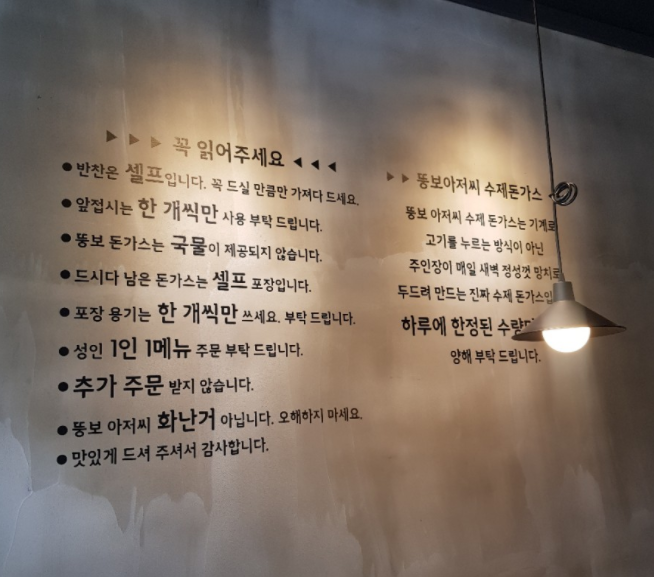 ▶ ▶ ▶ 꼭 읽어주세요 ◀ ◀ ◀
● 반찬은 셀프입니다. 꼭 드실 만큼만 가져다 드세요.
● 앞접시는 한 개씩만 사용 부탁 드립니다.
● 뚱보 돈가스는 국물이 제공되지 않습니다.
● 드시다 남은 돈가스는 셀프 포장입니다.
● 포장 용기는 한 개씩만 쓰세요. 부탁 드립니다.
● 성인 1인 1메뉴 주문 부탁 드립니다.
● 추가 주문 받지 않습니다.
● 뚱보 아저씨 화난거 아닙니다. 오해하지 마세요.
● 맛있게 드셔 주셔서 감사합니다.
▶ ▶ 뚱보아저씨 수제돈가스
뚱보 아저씨 수제 돈가스는 기계로
고기를 누르는 방식이 아닌
주인장이 매일 새벽 정성껏 망치로
두드려 만드는 진짜 수제 돈가스입
하루에 한정된 수량
양해 부탁 드립니다.